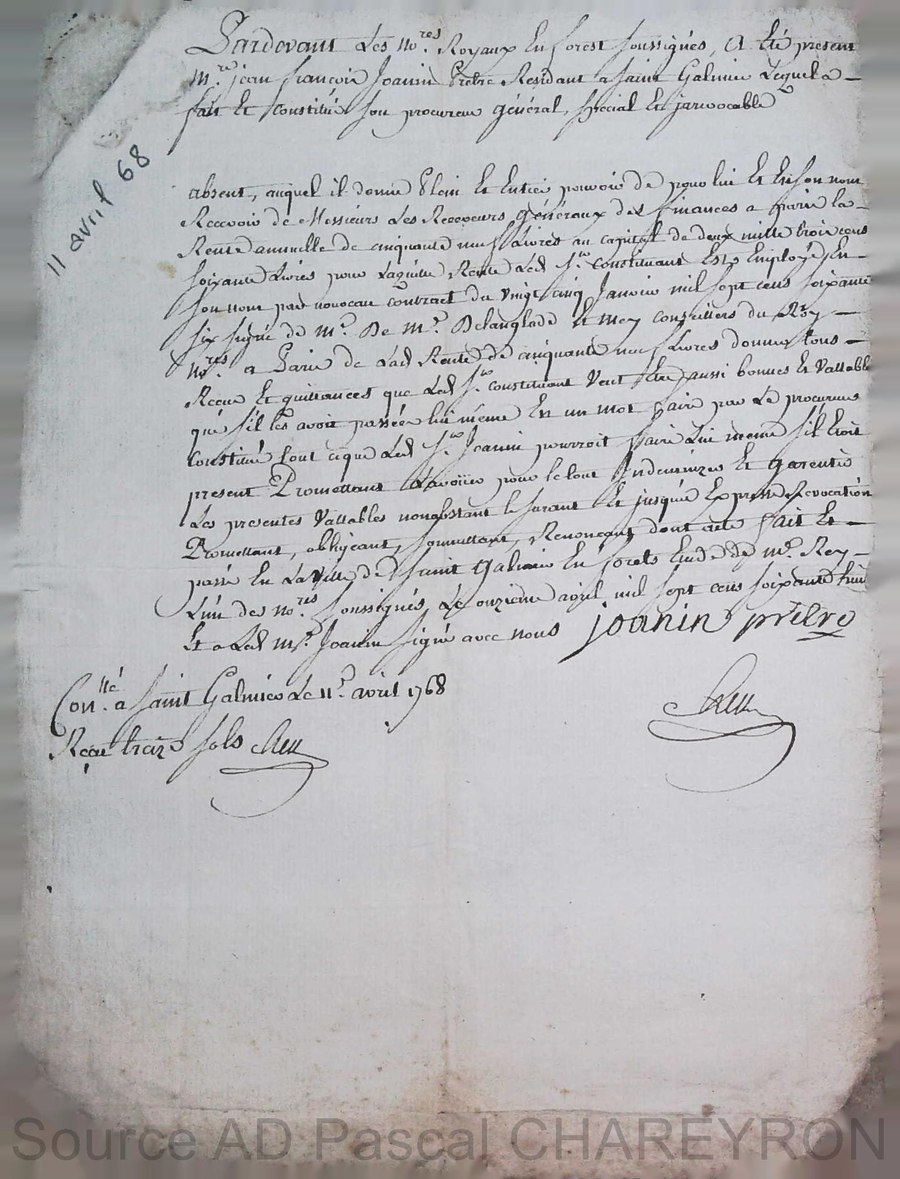 Pardevant Les No.res Royaux En forest soussignés, A Eté present
M.re jean françois Joanin Prêtre Residant a saint Galmier Lequel a
fait Et Constitué son procureur général, special Et irrevocable
11 avril 68
absent, auquel il donne Plein Et Entier pouvoir de pour lui Et En son nom
Recevoir de Messieurs Les Receveurs généraux des finances a Paris la
Rente annuelle de cinquante neuf Livres au capital de deux mille trois cens
soixante Livres pour Laquelle Rente Led S.r Constituant Est Employé En
son nom par nouveau contract du vingt cinq Janvier mil sept cens soixante
six signé de M.e De M.e Delanglade Et Mey Conseillers du Roy
N.res a Paris de Lad Rente de cinquante neuf Livres donner tous
Receu Et quittances que Led S.r constituant Veut Etre aussi bonnes Et Vallable
que s'il les avoit passées lui meme En un mot faire par Le procureur
Constitué tout ce que Led S.r Joanin pourroit faire Lui meme s'il Etoit
present Promettant L'avoüer pour le tout Indemnizer Et garentir
Les presentes Vallables nonobstant le surant Et jusqu'a Expresse Revocation
Promettant, obligeant, soumettant, Renonçant dont acte fait Et
passé En La Ville de Saint Galmier En forets Etude de M.e Rey
L'un des No.res soussignés, Le onzieme avril mil sept cens soixante huit
Et a Led M.re Joanin signé avec nous joanin prêtre
Con.llé a saint Galmier Le 11.e avril 1768
Reçu treize sols